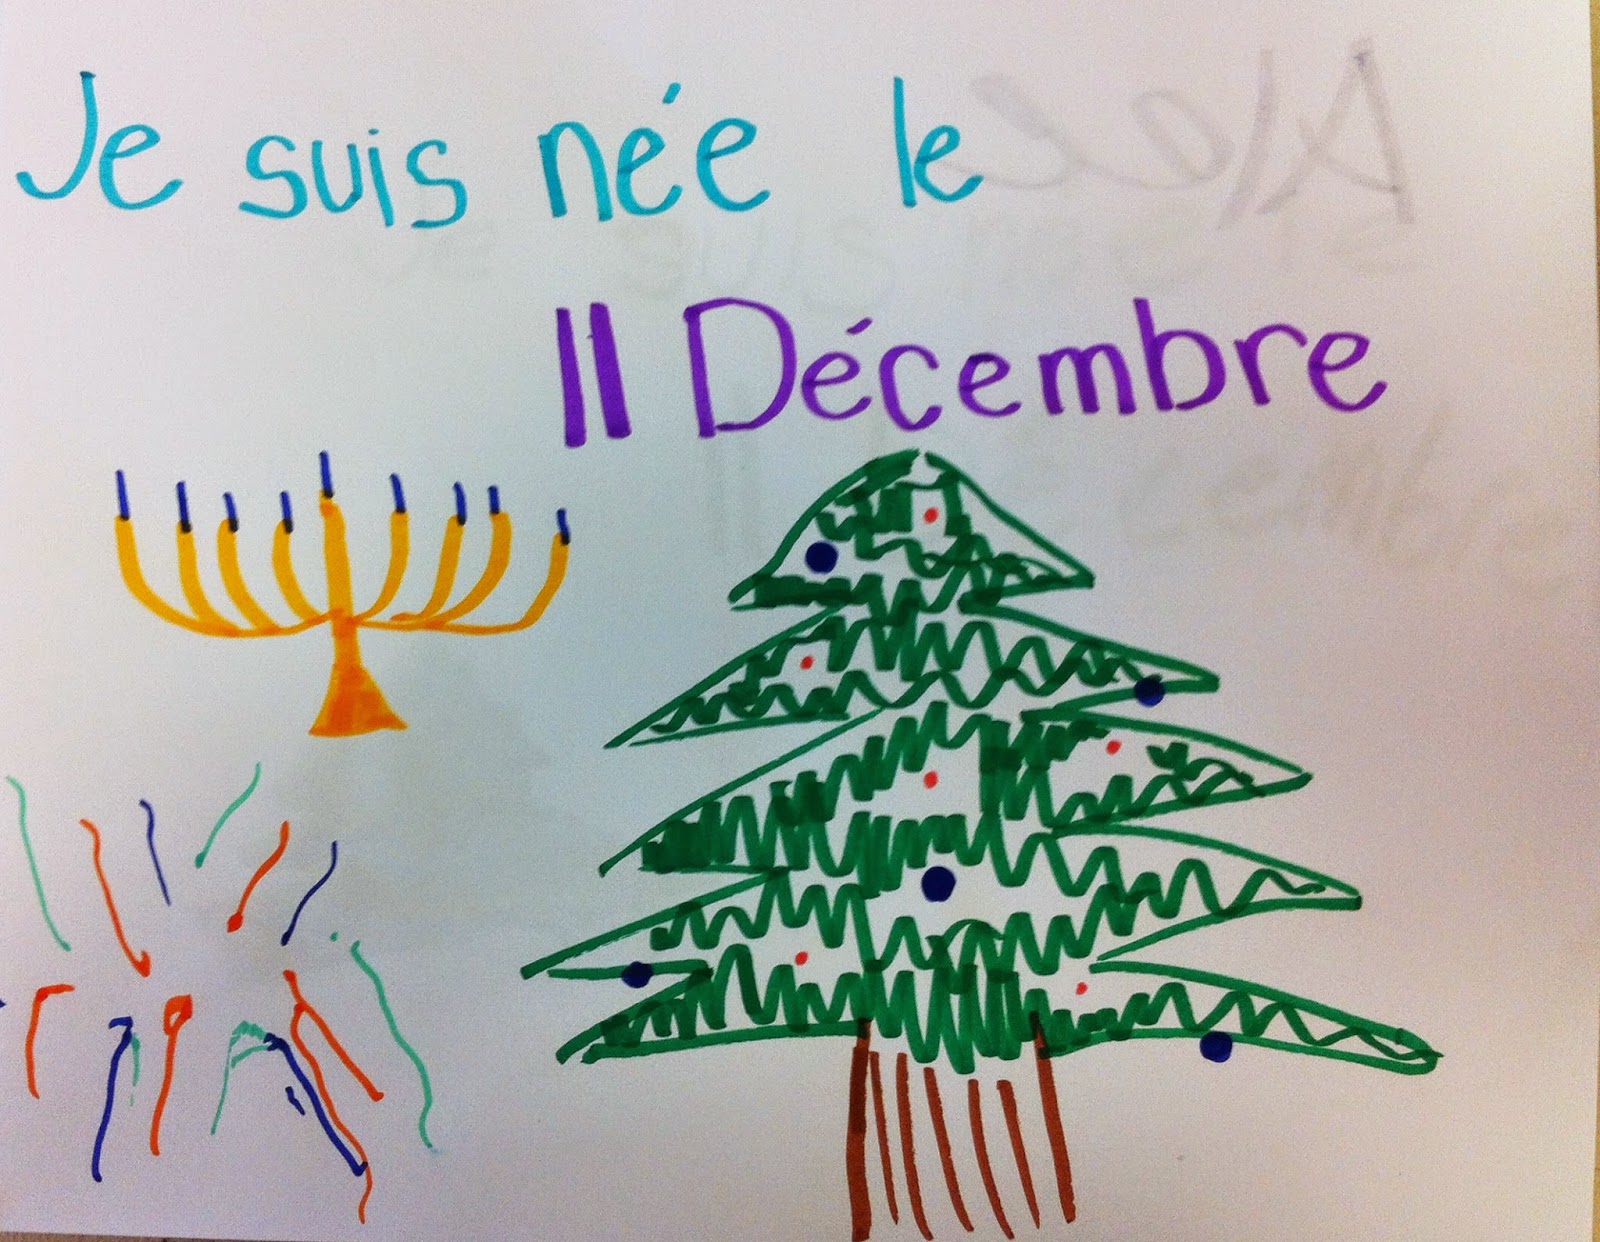 Je suis née le
11 Décembre